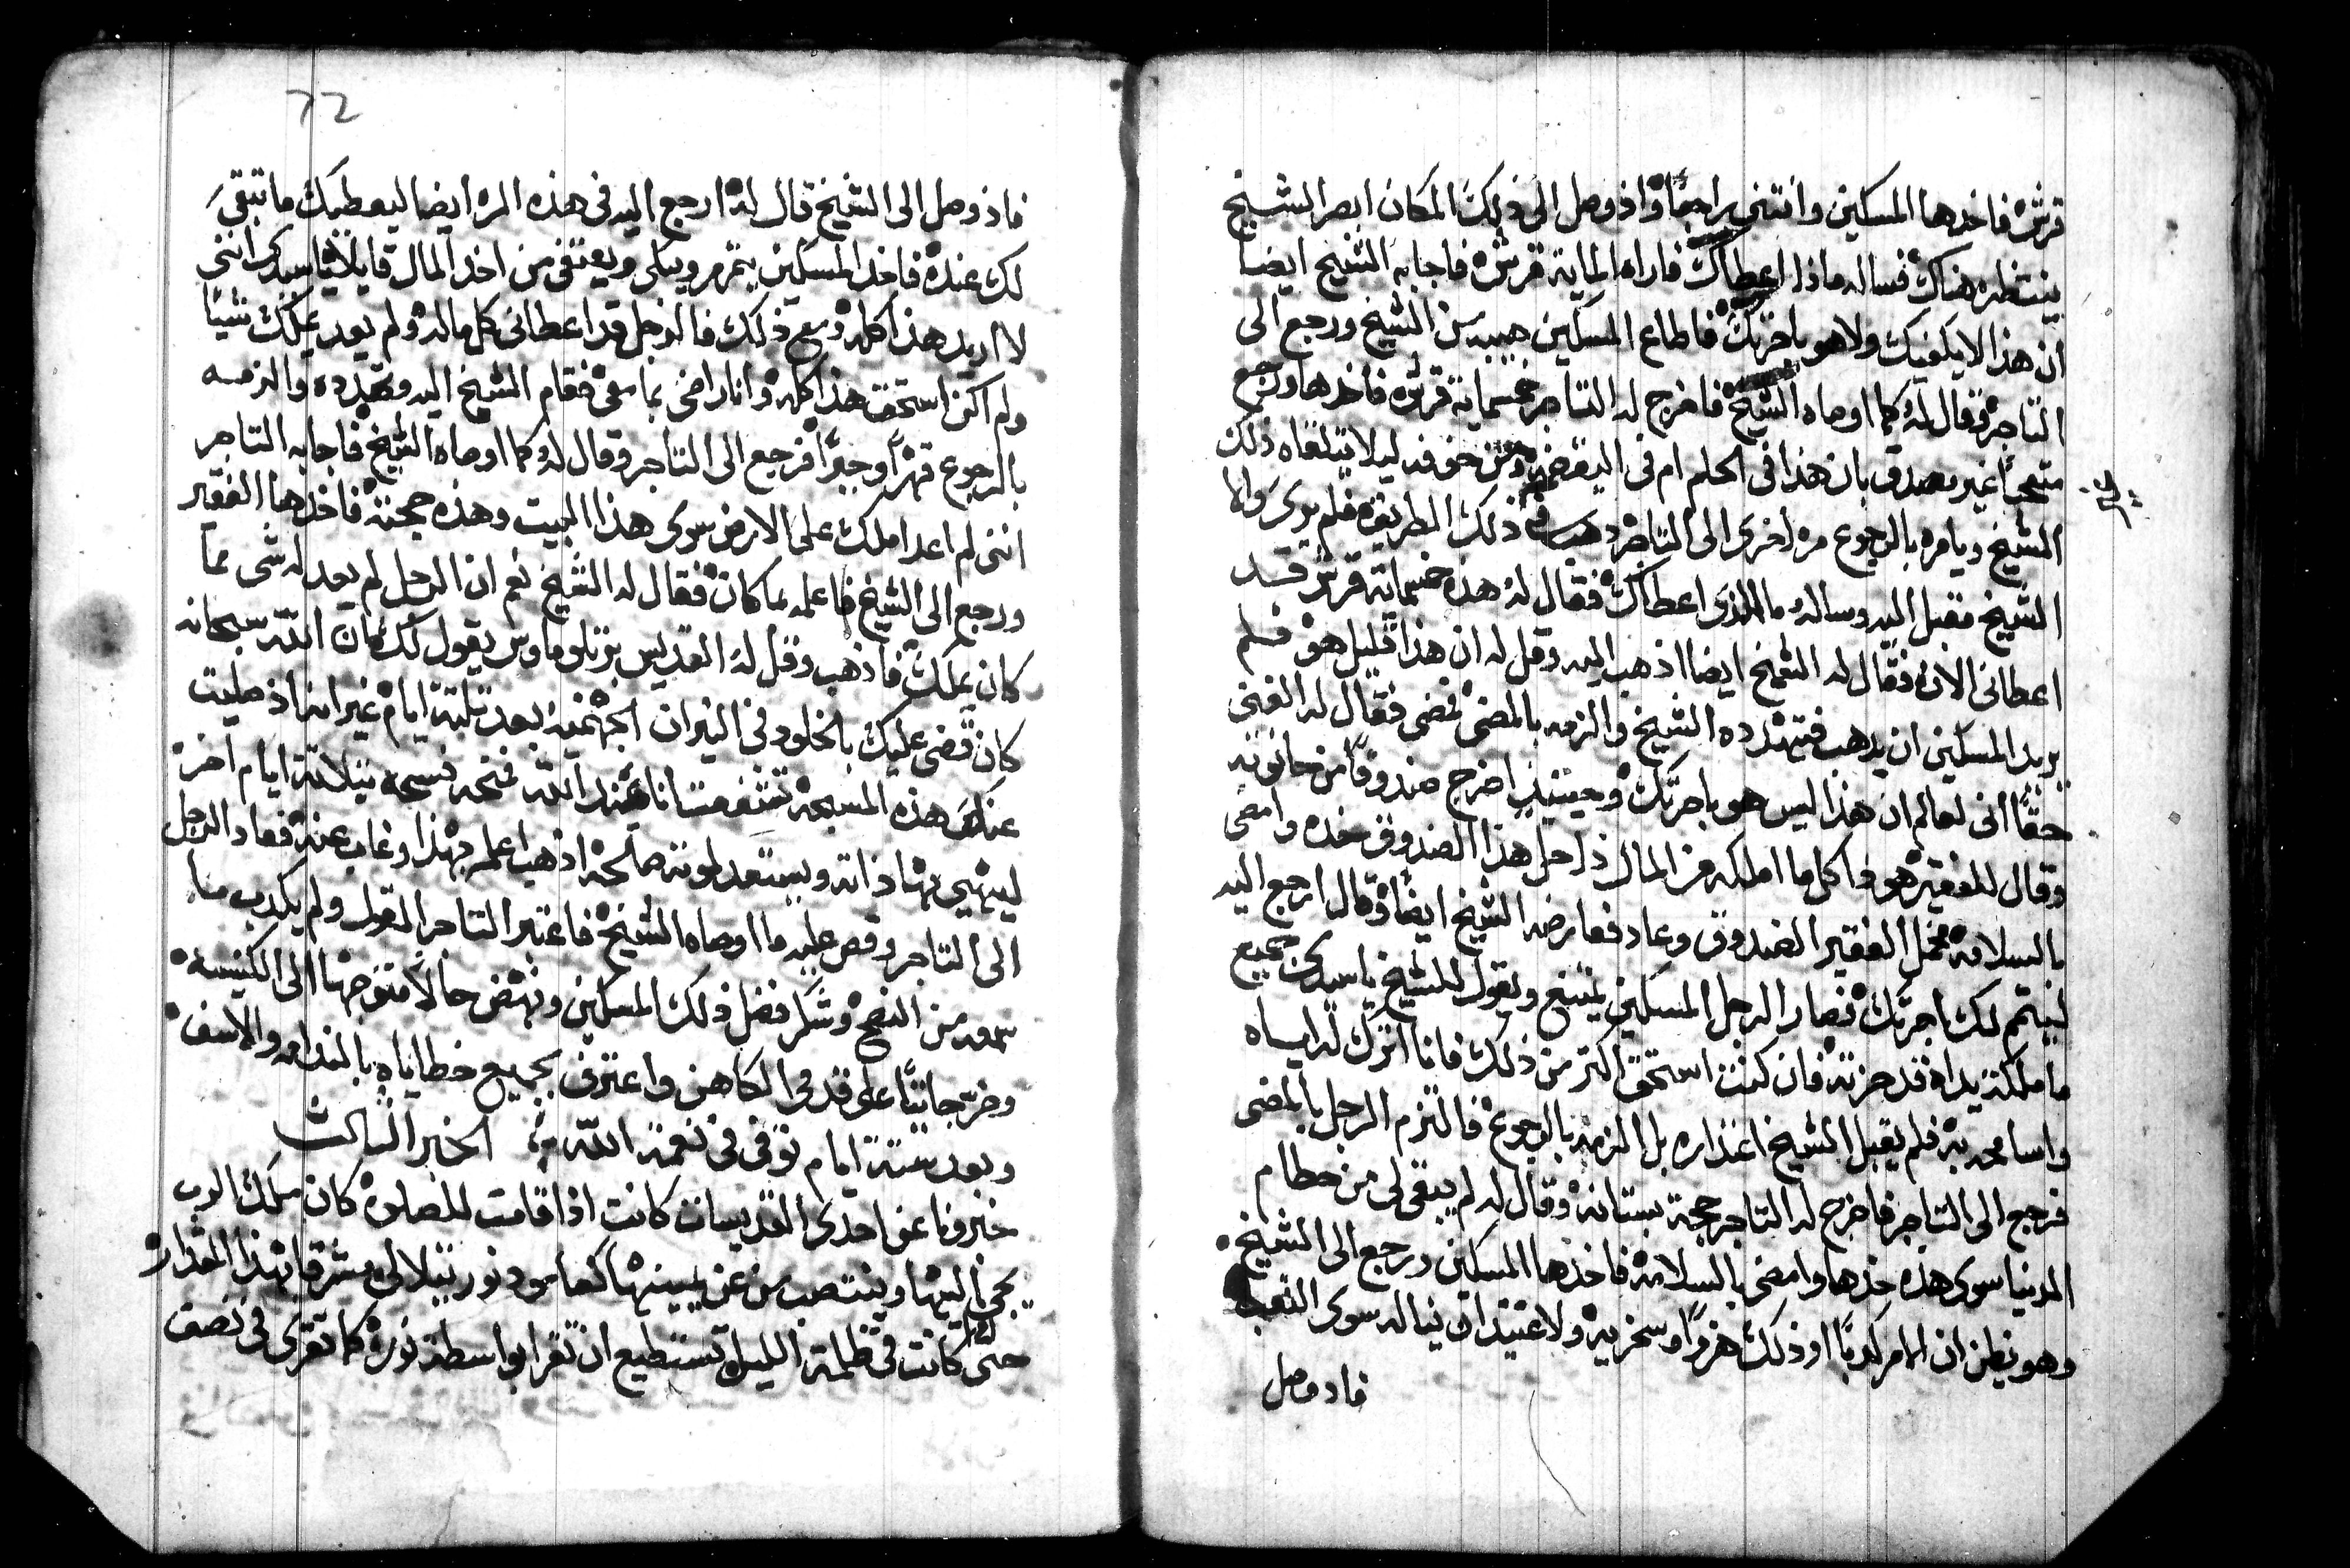 قرش فاخدها المسكين وانتنى راجعًا واذ وصل الى ذلك المكان ابصر الشيخ
ينتظره هناك فساله ماذا اعطاك فاراه الماية قرش فاجابه الشيخ ايضا
ان هذا لا يكفيك ولا هو باجرتك فاطاع المسكين هيبه من الشيخ ورجع الى
التاجر وقال له كما اوصاه الشيخ فاخرج له التاجر خمسماية قرش فاخدها ورجع
متعجبًا غير مصدق بان هذا فى الحلم ام فى اليقضه ومن خوفه ليلا يتلقاه ذلك
الشيخ ويامره بالرجوع مره اخرى الى التاجر ذلك الطريق فلم يرى والا
الشيخ مقبل اليه وساله ما الذى اعطاك فقال له هذه خمسماية قرش قد
اعطانى الان فقال له الشيخ ايضا اذهب اليه وقل له ان هذا قليل هو فلم
يريد المسكين ان يدهب فتهدده الشيخ والزمه بالمضى فمضى فقال له الغنى
حقًا انى لعالم ان هذا ليس هو باجرتك وحينيدٍ اخرج صندوقًا من حانوته
وقال للفقير هوذا كل ما املكه من المال داخل هذا الصندوق خده وامضى
بالسلامه فحمل الفقير الصندوق وعاد فعارضه الشيخ ايضًا وقال له ارجع اليه
ليتم لك اجرتك فصار الرجل المسكين يمتنع ويقول للشيخ ياسيدى جميع
ما ملكته يداه قد حزته فان كنت استحق اكتر من ذلك فانا اترك له اياه
واسامحه به فلم يقبل الشيخ اعتذاره بل الزمه بالرجوع فالتزم الرجل بالمضى
فرجع الى التاجر فاخرج له التاجر حجة بستانه وقال له لم يبقى لى من حطام
الدنيا سوى هذه خدها وامضى بالسلامه فاخدها المسكين ورجع الى الشيخ
وهو يظن ان الامر كدبًا او ذلك هزوًا وسخريه ولا عتيد ان يناله سوى التعب
فاد وصل
72
فاذ وصل الى الشيخ قال له ارجع اليه فى هذه المره ايضا ليعطيك ما تبقى
لك عنده فاخد المسكين يتمرمر ويبكى ويعتفى من اخد المال قايلًا ياسيدى اننى
لا اريد هذا كله ومع ذلك فالرجل قد اعطانى كل ماله ولم يعد يملك شيًا
ولم اكن استحق هذا كله وانا راضى بما معى فقام الشيخ اليه وتهدده والزمه
بالرجوع قهرًا وجبرًا فرجع الى التاجر وقال له كما اوصاه الشيخ فاجابه التاجر
اننى لم اعد املك على الارض سوى هذا البيت وهذه حجته فاخدها الفقير
ورجع الى الشيخ فاعلمه بما كان فقال له الشيخ نعم ان الرجل لم يعد له شى مما
كان يملك فاذهب وقل له القديس برتلوماوس يقول لك ان الله سبحانه
كان قضى عليك بالخلود فى النيران الجهنمية بعد ثلثة ايام غير انه اذ صليت
عندك هذه المسبحه تشفعت انا عند الله فمنحه فسحه بثلاثة ايام اخر
ليهيى بها ذاته ويستعد لموته صالحه اذهب اعلمه بهذا وغاب عنه فعاد الرجل
الى التاجر وقص عليه ما اوصاه الشيخ فاعتبر التاجر القول ولم يكدب ما
سمعه من النصح وشكر فضل ذلك المسكين ونهض حالًا متوجهًا الى الكنيسه
وخر جاثيًا على قدمى الكاهن واعترف بجميع خطاياه بالندامه والاسف
وبعد ستة ايام توفى فى نعمة الله ؞ الخبر الثالث
خبرونا عن احدى القديسات كانت اذا قامت للصلوة كان ملاك الرب
يجى اليها وينتصب من عن يمينها كعامود نور يتلالى مشرقا بهذا المقدار
حتى انها كانت فى ظلمة الليل تستطيع ان تقرا بواسطة نوره كما تقرى فى نصف